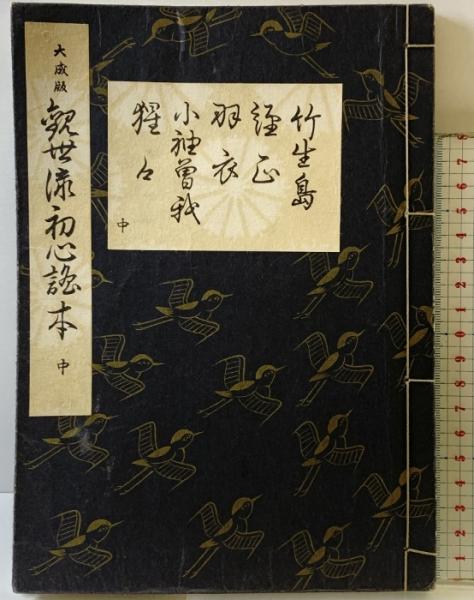 大成版 観世流初心謡本 中
竹生島
經正
羽衣
小袖曽我
猩々
中